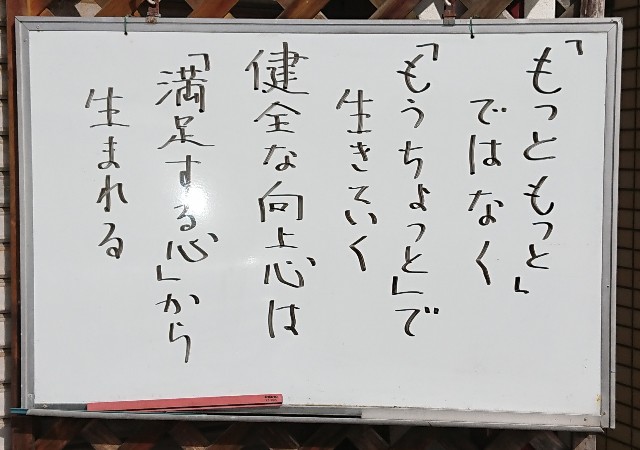 「もっともっと」
ではなく
「もうちょっと」で
生きていく
健全な向上心は
「満足する心」から
生まれる